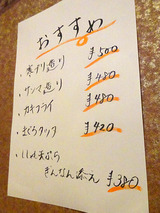 おすすめ
・寒ブリ造り ¥500
・サンマ造り ¥480
・カキフライ ¥480
・まぐろユッケ ¥420
・しし唐天ぷら
ぎんなん
¥380